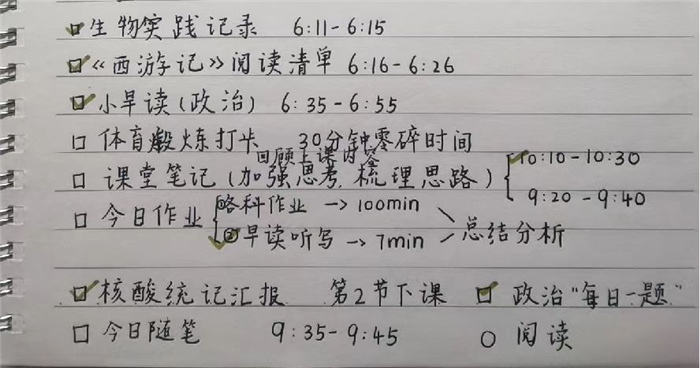 生物实践记录 6:11-6:15
《西游记》阅读清单 6:16-6:26
小早读(政治) 6:35-6:55
体育锻炼打卡 30分钟零碎时间
回顾上课内容
课堂笔记(加强思考,梳理思路) 10:10-10:30
9:20-9:40
今日作业 ①各科作业 → 100min
②早读听写 → 7min 总结分析
核酸统记汇报 第2节下课 政治"每日一题"
今日随笔 9:35-9:45 阅读